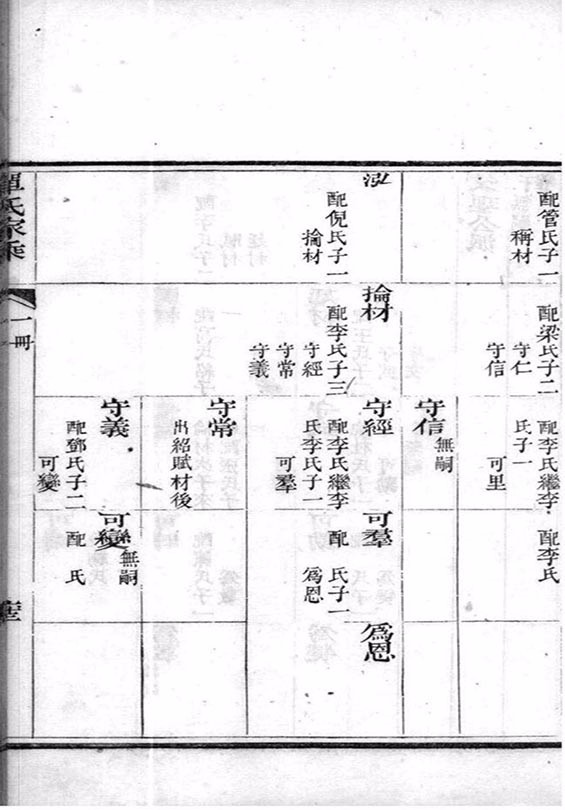 配管氏子一
稱材
配梁氏子二
守仁
守信
配李氏繼李
氏子一
可里
配李氏
守信
無嗣
泓
配倪氏子一
掄材
掄材
配李氏子三
守經
守常
守義
守經
配李氏繼李
氏李氏子一
可羣
可羣
配 氏子一
為恩
為恩
守常
出紹賦材後
守義
配鄧氏子二
可變
可變
無嗣
配 氏
氏家乘
一冊